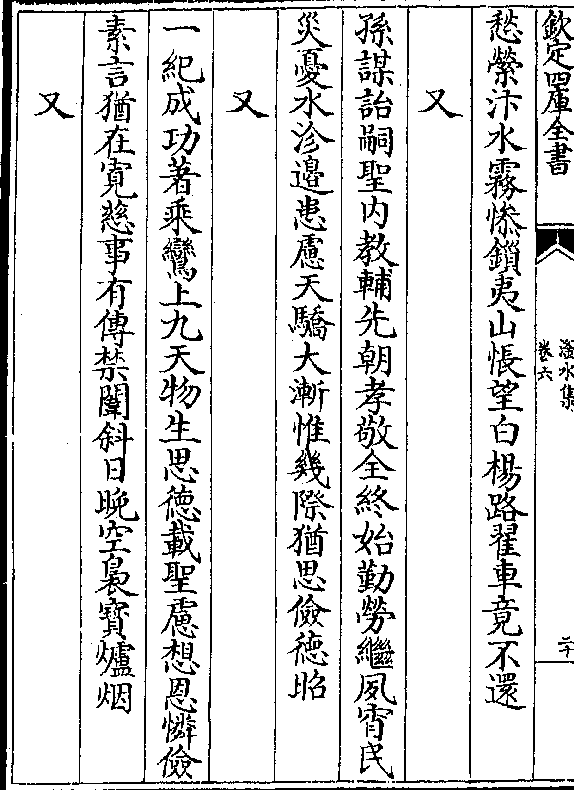 欽定四庫全書
滏水集
卷六
二十
愁縈汴水霧惨鎻夷山悵望白楊路翟車竟不還
又
孫謀詒嗣聖内教輔先朝孝敬全終始勤勞繼夙宵民
災憂水沴邉患慮天驕大漸惟幾際猶思儉徳昭
又
一紀成功著乘鸞上九天物生思徳載聖慮想恩憐儉
素言猶在寛慈事有傳禁闈斜日晚空裊寳爐烟
又